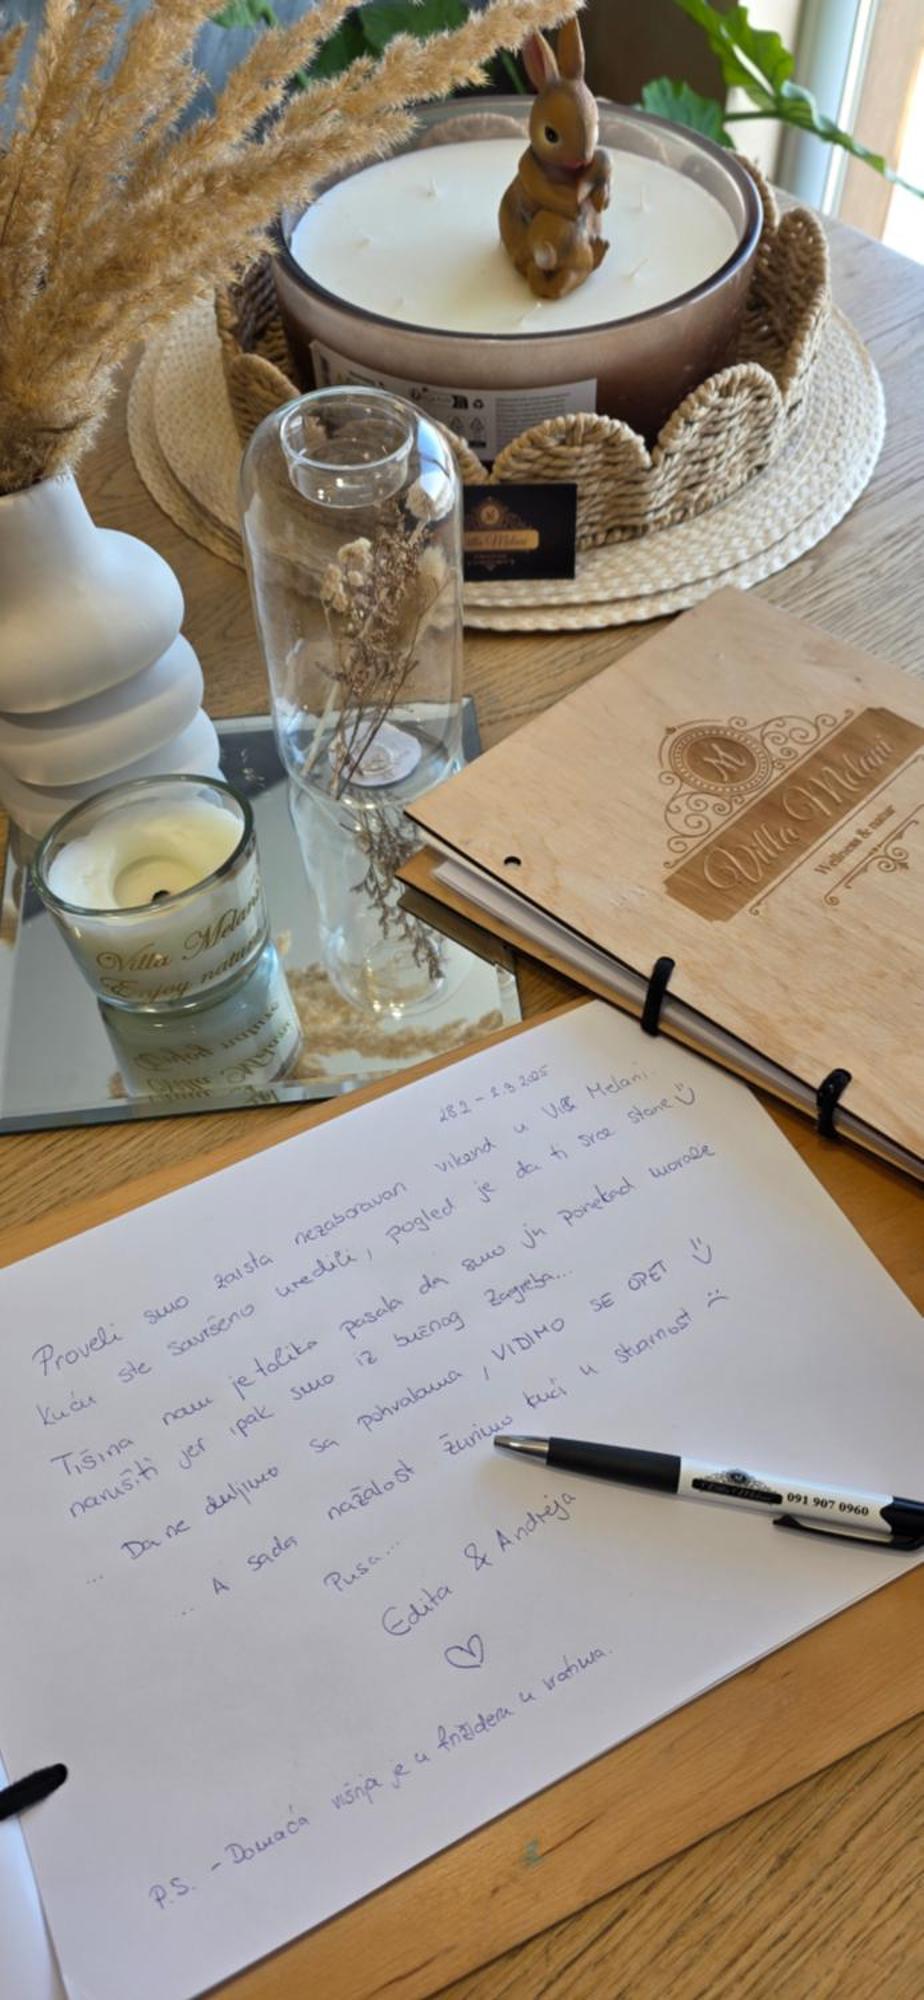 M
Villa Melani
M
Villa Melani
Wellness & natur
Villa Melani
Enjoy nature
28.2 - 2.3.2025
Proveli smo zaista nezaboravan vikend u Vili Melani.
Kuću ste savršeno uredili, pogled je da ti srce stane
Tišina nam je toliko pasala da smo ju ponekad morale
narušiti jer ipak smo iz bučnog Zagreba...
... Da ne duljimo sa pohvalama, VIDIMO SE OPET
... A sada nažalost žurimo kući u stvarnost
Pusa...
Edita & Andreja
P.S. - Domaća višnja je u frižideru u vratima.
091 907 0960